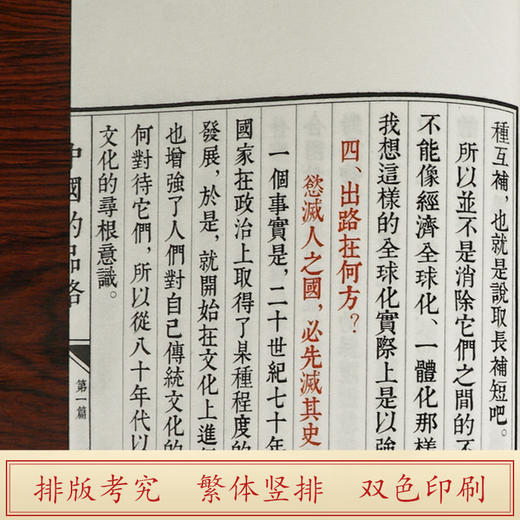 種互補，也就是說取長補短吧。
所以並不是消除它們之間的不
不能像經濟全球化、一體化那樣
我想這樣的全球化實際上是以強
四、出路在何方？
慾滅人之國，必先滅其史
一個事實是，二十世紀七十年
國家在政治上取得了某種程度的
發展，於是，就開始在文化上進行
也增強了人們對自己傳統文化的
何對待它們，所以從八十年代以
文化的尋根意識。
中國的品格
第一篇
排版考究 繁体竖排 双色印刷